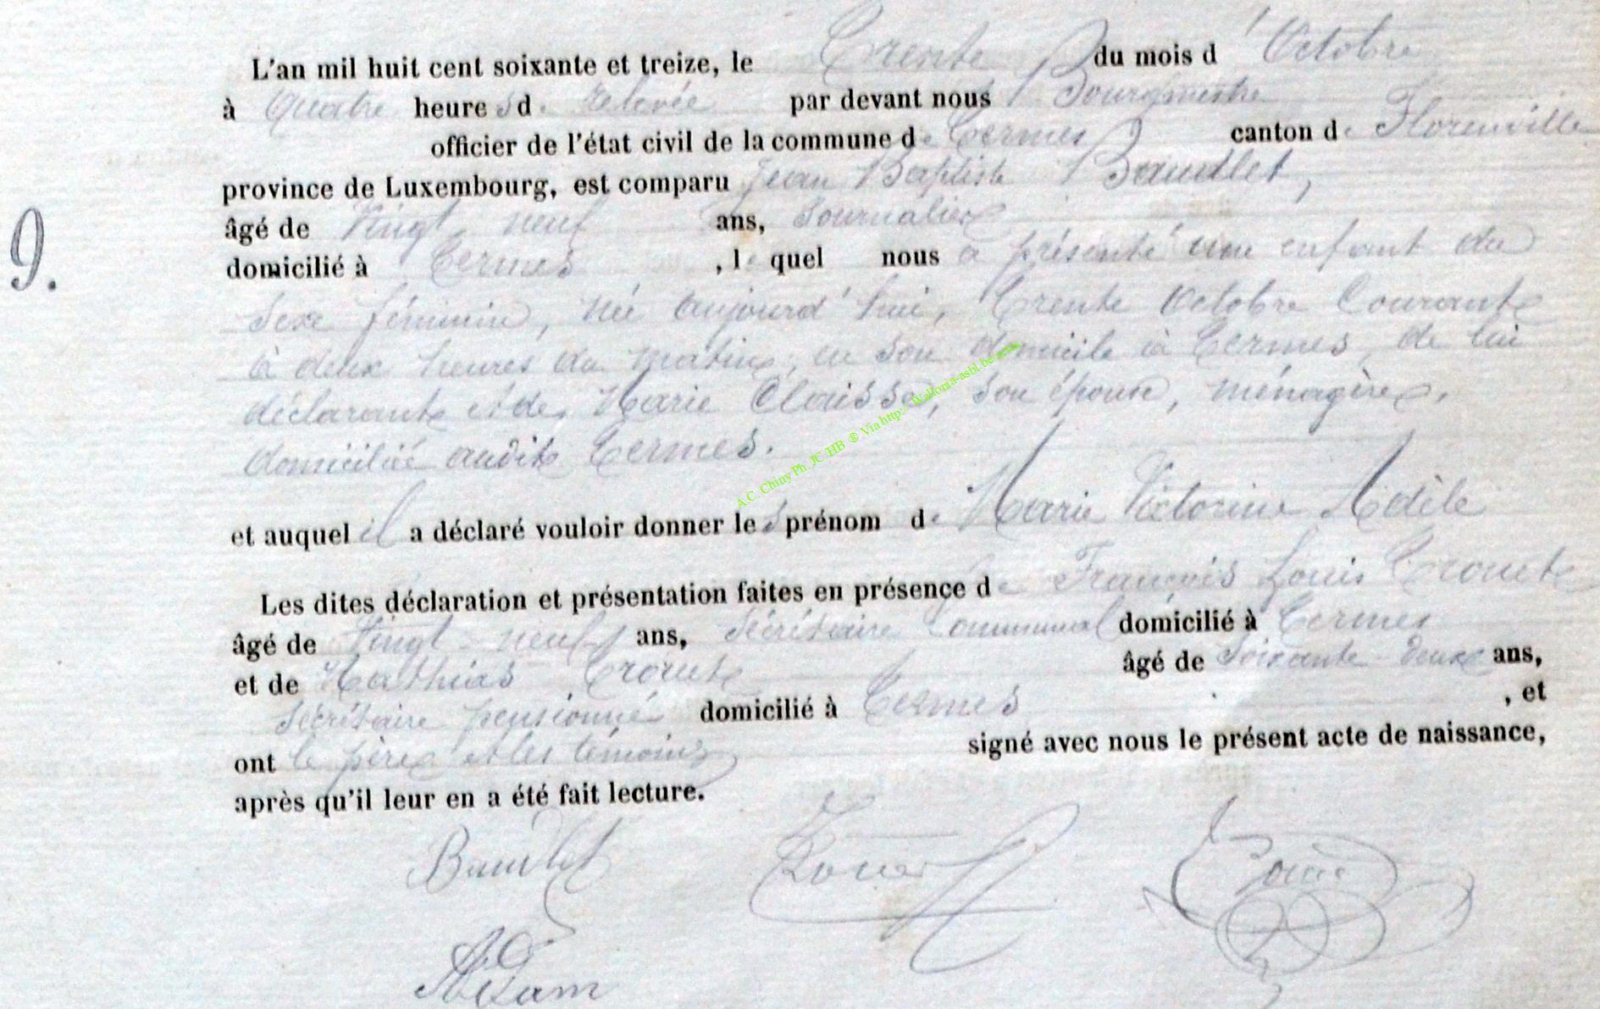 L'an mil huit cent soixante et treize, le Trente du mois d'Octobre
à Quatre heures de relevée par devant nous Bourgmestre
officier de l'état civil de la commune de Termes canton de Florenville
province de Luxembourg, est comparu Jean Baptiste Baudlet,
âgé de Vingt neuf ans, Journalier
9.
domicilié à Termes , le quel nous a présenté une enfant du
Sexe féminin, née aujourd'hui, Trente Octobre Courant
à deux heures du matin, en son domicile à Termes, de lui
déclarant et de Marie Claisse, son épouse, ménagère,
domiciliée audit Termes.
A.C. Chiny Ph. JC HB ® Via http:
et auquel il a déclaré vouloir donner les prénom de Marie Victorine Adèle
Les dites déclaration et présentation faites en présence de François Louis
âgé de Vingt-neuf ans, Sécrétaire Communal domicilié à Termes
et de Mathias âgé de Soixante-deux ans,
Sécrétaire pensionné domicilié à Termes , et
ont le père et les témoins signé avec nous le présent acte de naissance,
après qu'il leur en a été fait lecture.
Baudlet
Adam